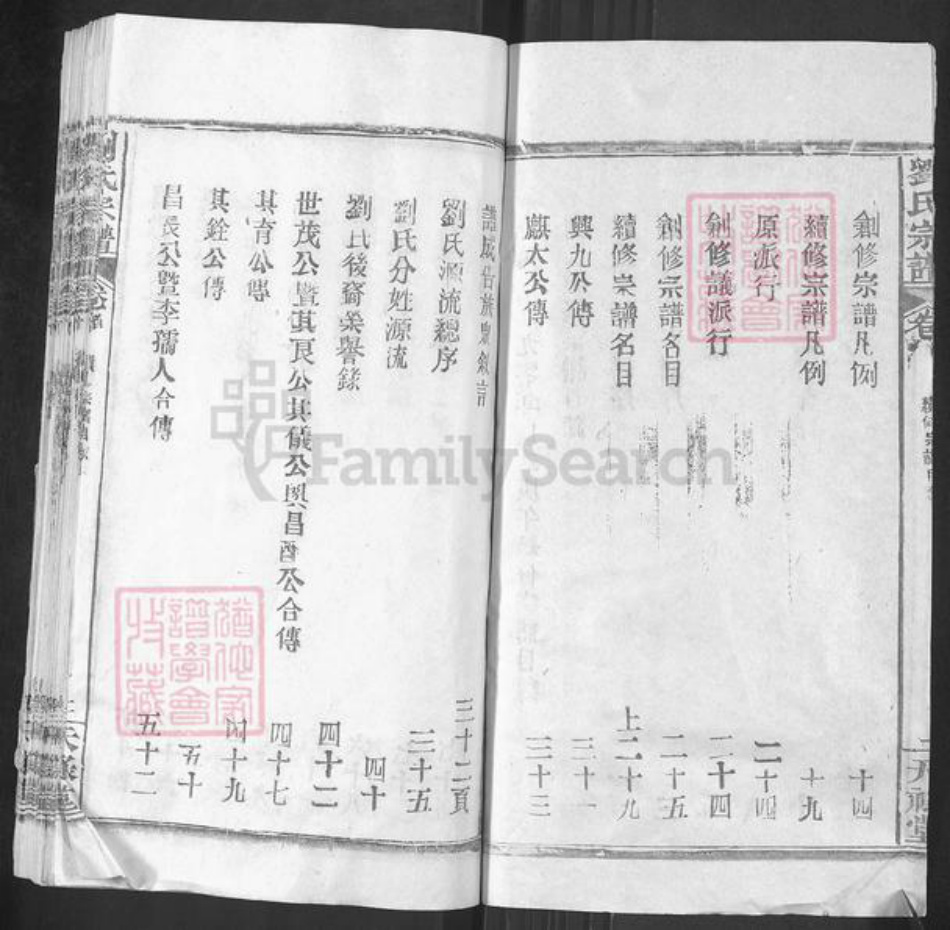 劉氏宗譜
創修宗譜凡例 十四
續修宗譜凡例 十九
原派行 二十四
創修議派行 二十四
創修宗譜名目 二十五
續修宗譜名目 上二十九
興九公傳 三十一
麒太公傳 三十三
譜成合族眾敘言 三十二頁
劉氏源流總序 三十五
劉氏分姓源流 四十
劉氏後裔榮譽錄 四十二
世茂公暨其良公其儀公興昌酉公合傳 四十七
其育公傳 四十九
其銓公傳 五十
昌辰公暨李孺人合傳 五十二
劉氏宗譜
猶他家譜學會
猶他家譜學會收藏
FamilySearch